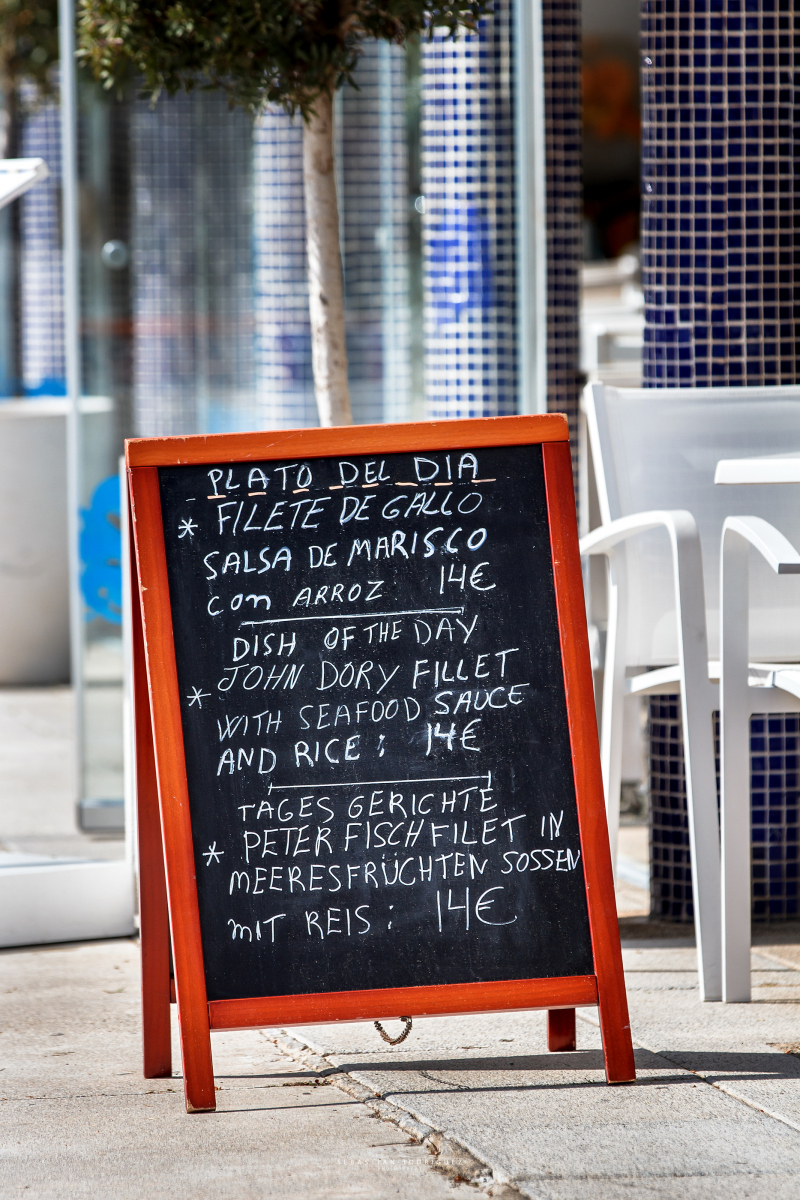 PLATO DEL DIA
* FILETE DE GALLO
SALSA DE MARISCO
con ARROZ 14€
DISH OF THE DAY
* JOHN DORY FILLET
WITH SEAFOOD SAUCE
AND RICE : 14€
TAGES GERICHTE
* PETER FISCH FILET IN
MEERESFRÜCHTEN SOSSEN
MIT REIS : 14€